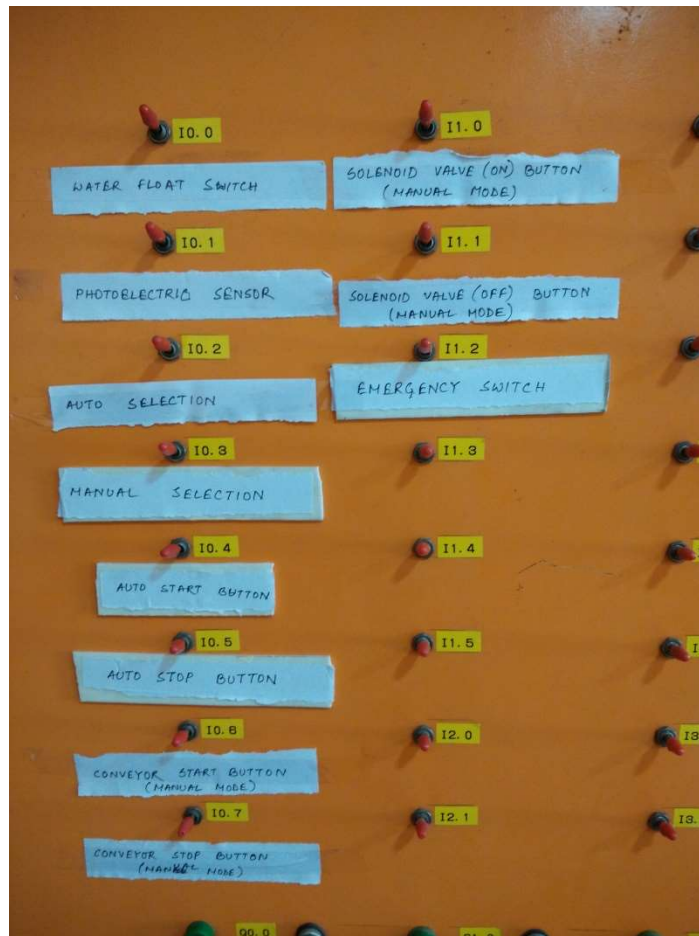 I0.0
WATER FLOAT SWITCH
I0.1
PHOTOELECTRIC SENSOR
I0.2
AUTO SELECTION
I0.3
MANUAL SELECTION
I0.4
AUTO START BUTTON
I0.5
AUTO STOP BUTTON
I0.6
CONVEYOR START BUTTON
(MANUAL MODE)
I0.7
CONVEYOR STOP BUTTON
(MANUAL MODE)
I1.0
SOLENOID VALVE (ON) BUTTON
(MANUAL MODE)
I1.1
SOLENOID VALVE (OFF) BUTTON
(MANUAL MODE)
I1.2
EMERGENCY SWITCH
I1.3
I1.4
I1.5
I2.0
I2.1
I3.
Q0.0